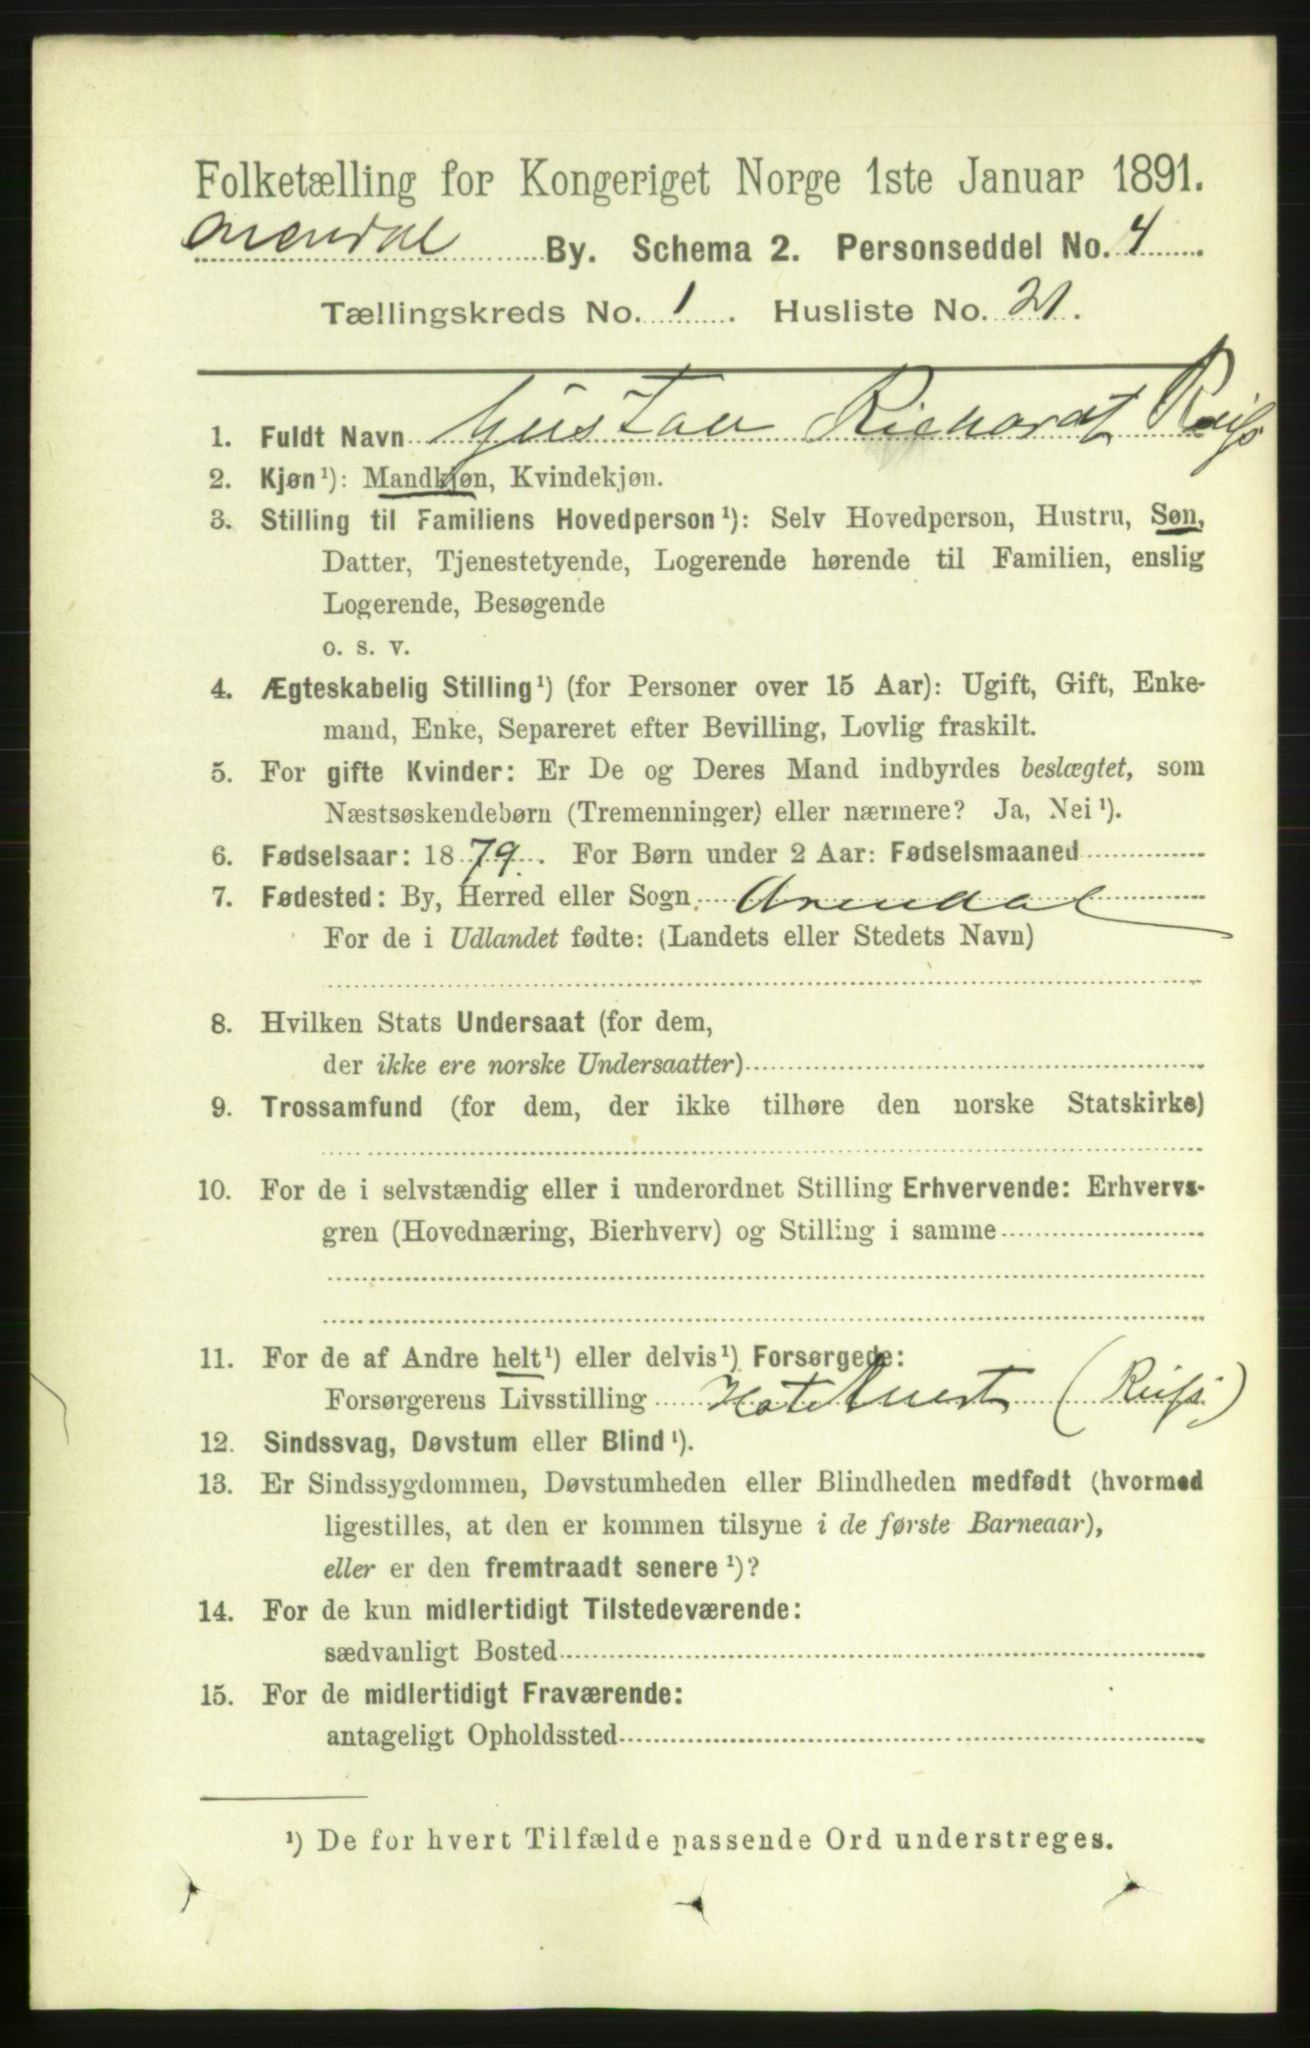 Folketælling for Kongeriget Norge 1ste Januar 1891.
Arendal By. Schema 2. Personseddel No. 4
Tællingskreds No. 1. Husliste No. 21.
1. Fuldt Navn Gustav Richardt Reiss
2. Kjøn¹): Mandkjøn, Kvindekjøn.
3. Stilling til Familiens Hovedperson¹): Selv Hovedperson, Hustru, Søn,
Datter, Tjenestetyende, Logerende hørende til Familien, enslig
Logerende, Besøgende
o. s. v.
4. Ægteskabelig Stilling¹) (for Personer over 15 Aar): Ugift, Gift, Enke-
mand, Enke, Separeret efter Bevilling, Lovlig fraskilt.
5. For gifte Kvinder: Er De og Deres Mand indbyrdes beslægtet, som
Næstsøskendebørn (Tremenninger) eller nærmere? Ja, Nei¹).
6. Fødselsaar: 1879. For Børn under 2 Aar: Fødselsmaaned
7. Fødested: By, Herred eller Sogn Arendal
For de i Udlandet fødte: (Landets eller Stedets Navn)
8. Hvilken Stats Undersaat (for dem,
der ikke ere norske Undersaatter)
9. Trossamfund (for dem, der ikke tilhøre den norske Statskirke)
10. For de i selvstændig eller i underordnet Stilling Erhvervende: Erhvervs-
gren (Hovednæring, Bierhverv) og Stilling i samme
11. For de af Andre helt¹) eller delvis¹) Forsørgede:
Forsørgerens Livsstilling Hotelvert (Reiss)
12. Sindssvag, Døvstum eller Blind¹).
13. Er Sindssygdommen, Døvstumheden eller Blindheden medfødt (hvormed
ligestilles, at den er kommen tilsyne i de første Barneaar),
eller er den fremtraadt senere¹)?
14. For de kun midlertidigt Tilstedeværende:
sædvanligt Bosted
15. For de midlertidigt Fraværende:
antageligt Opholdssted
¹) De for hvert Tilfælde passende Ord understreges.